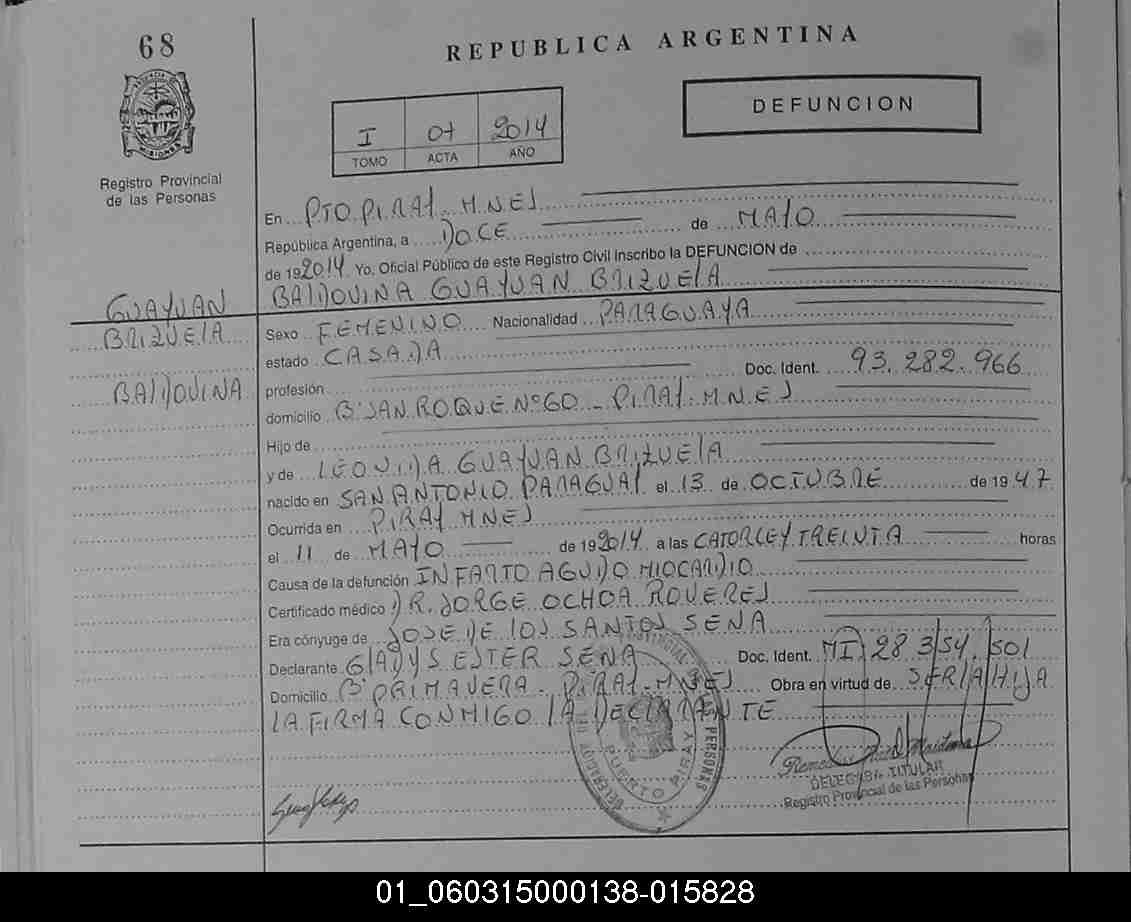 68
REPUBLICA ARGENTINA
DEFUNCION
I 07 2014
TOMO ACTA AÑO
Registro Provincial
de las Personas
En PTO. PIRAY. MNES
República Argentina, a DOCE de MAYO
de 192014 Yo, Oficial Público de este Registro Civil inscribo la DEFUNCION de
GUAYUAN BALDOVINA GUAYUAN BRIZUELA
BRIZUELA Sexo FEMENINO Nacionalidad PARAGUAYA
estado CASADA
BALDOVINA profesión Doc. Ident. 93.282.966
domicilio Bº SAN ROQUE Nº 60 - PIRAY - MNES
Hijo de
y de LEONIDA GUAYUAN BRIZUELA
nacido en SAN ANTONIO PARAGUAY el 13 de OCTUBRE de 19 47
Ocurrida en PIRAY MNES
el 11 de MAYO de 192014 a las CATORCE Y TREINTA horas
Causa de la defunción INFARTO AGUDO MIOCARDIO
Certificado médico DR. JORGE OCHOA ROVERES
Era cónyuge de JOSE DE LOS SANTOS SENA
Declarante GLADYS ESTER SENA Doc. Ident. MI 28 354 501
Domicilio Bº PRIMAVERA - PIRAY - MNES Obra en virtud de SER LA HIJA
LA FIRMA CONMIGO LA DECLARANTE
PROVINCIAL DE LAS PERSONAS
PUERTO PIRAY
DELEGADA TITULAR
Registro Provincial de las Personas
01_060315000138-015828